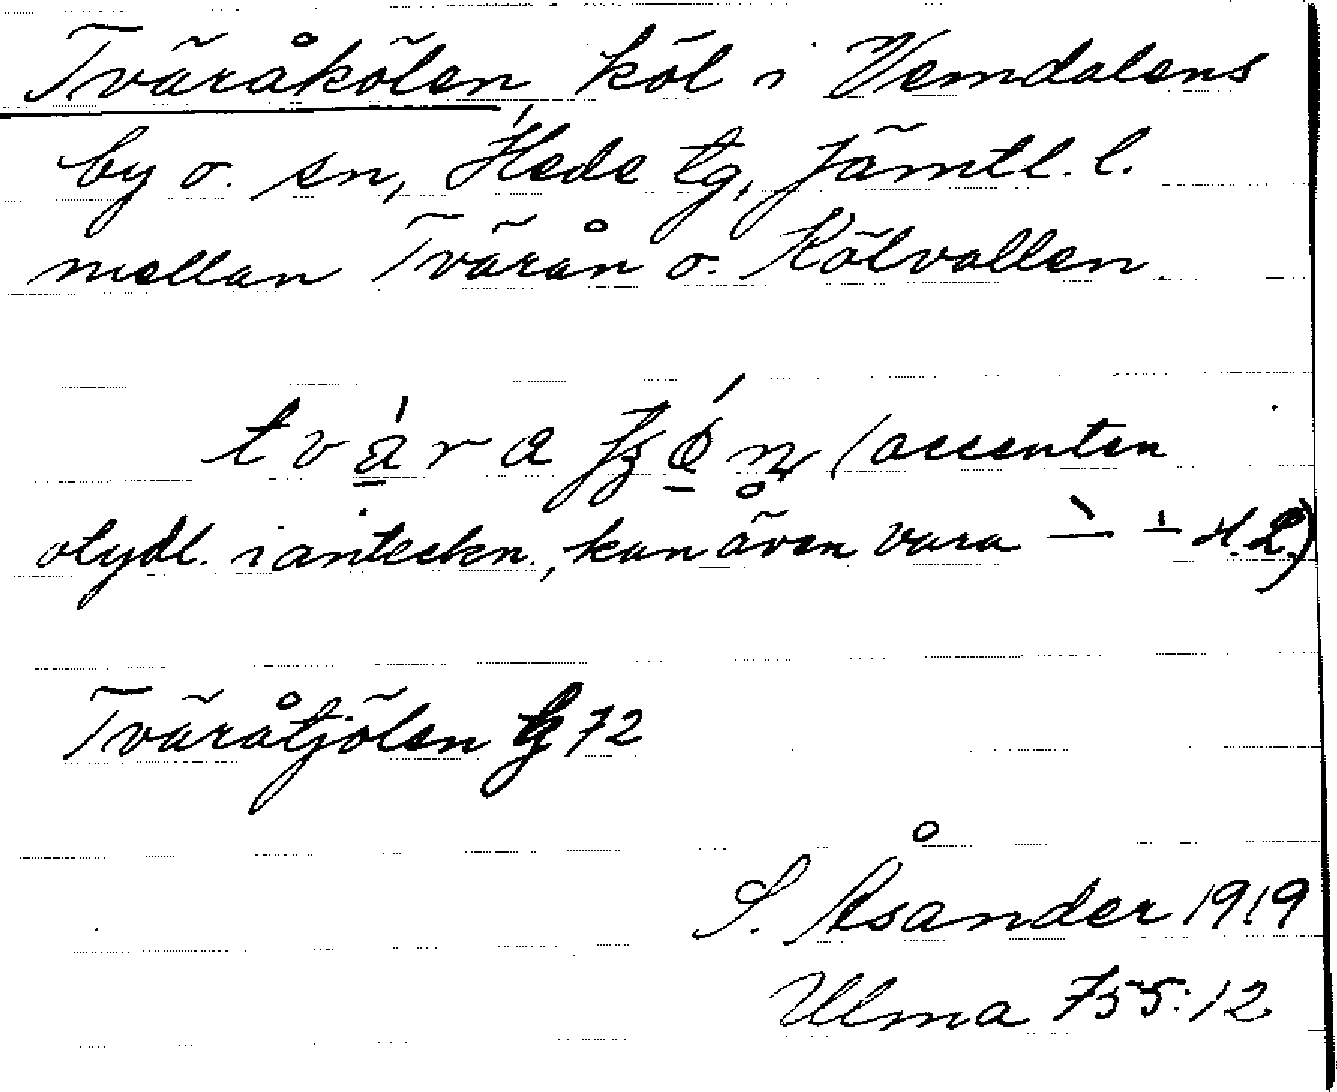 Tväråkölen, köl i Vemdalens
by o. sn, Hede tg, Jämtl. l.
mellan Tvärån o. Kölvallen.
(accenten
otydl. i anteckn., kan även vara
Tväråtjölen 72
S. Åsander 1919
Ulma 755:12